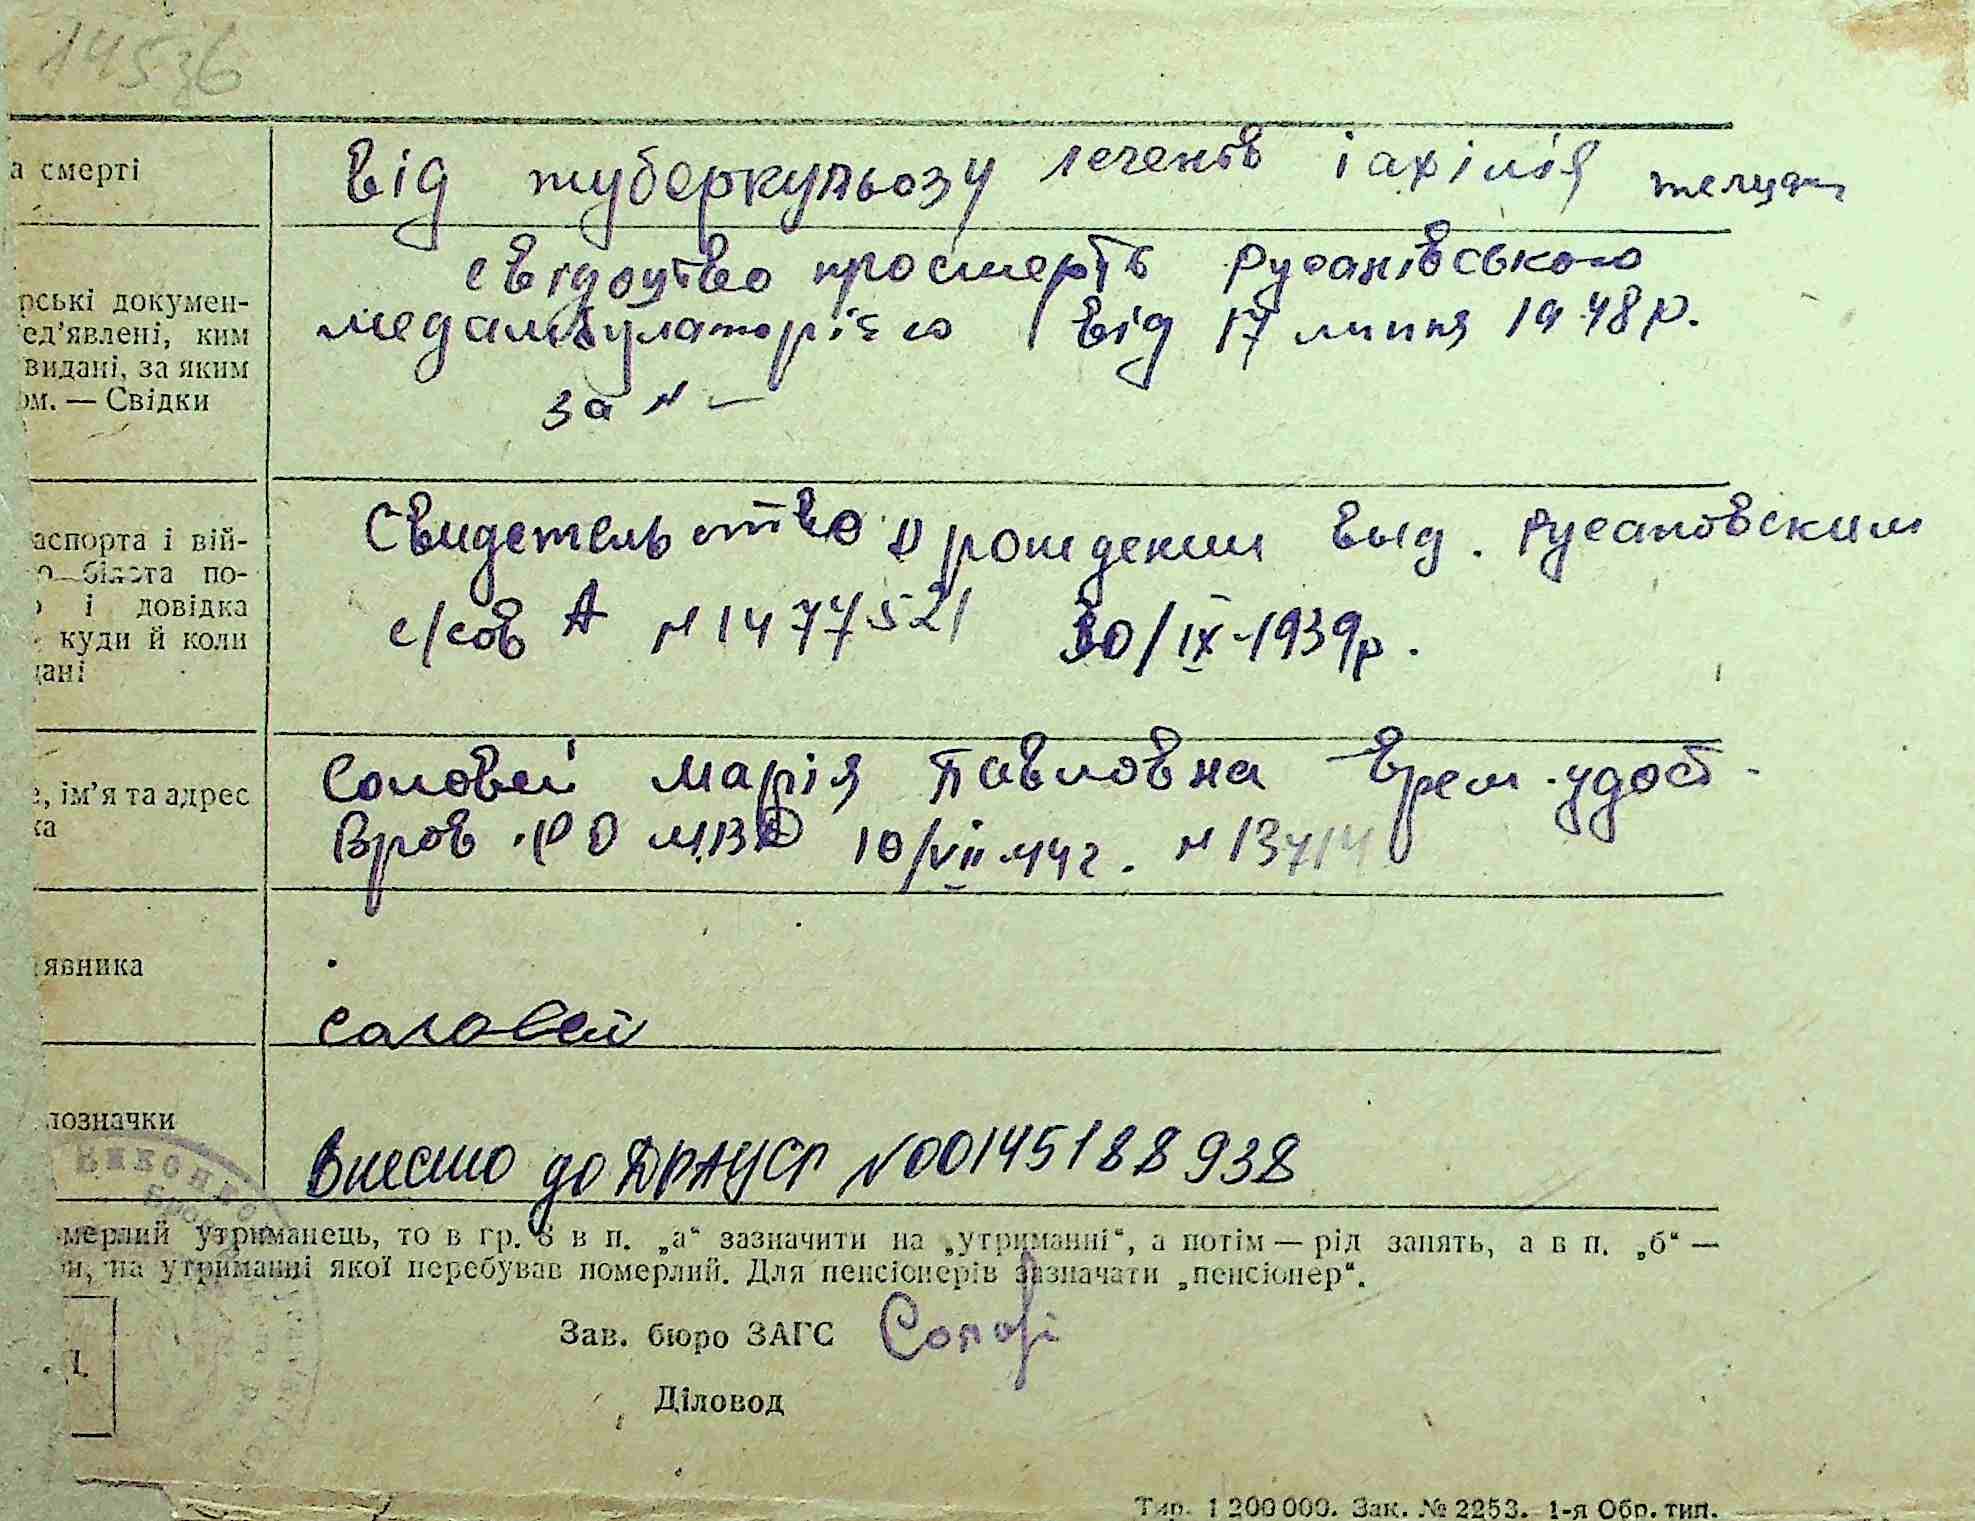 14536
а смерті
Від туберкульозу легенів і ахілія
рські докумен-
ед’явлені, ким
видані, за яким
ом. — Свідки
свідоцтво про смерть Русанівського
медамбулаторією від 17 липня 1948 р.
за № —
аспорта і вій-
о білета по-
і довідка
куди й коли
дані
Свидетельство о рождении выд. Русановским
с/сов А № 1477521 30/IX-1939р.
е, ім’я та адрес
ка
Соловей Марія Павловна врем. удост.
Бров. РО МВД 10/VII-44г. № 13714
явника
Соловей
позначки
Внесено до ДРАЦСГ №00145188938
Викон
Бров
мерлий утриманець, то в гр. 8 в п. „а“ зазначити на „утриманні“, а потім — рід занять, а в п. „б“ —
и, на утриманні якої перебував померлий. Для пенсіонерів зазначати „пенсіонер“.
Зав. бюро ЗАГС
Діловод
Тир. 1 200 000. Зак. № 2253. 1-я Обр. тип.